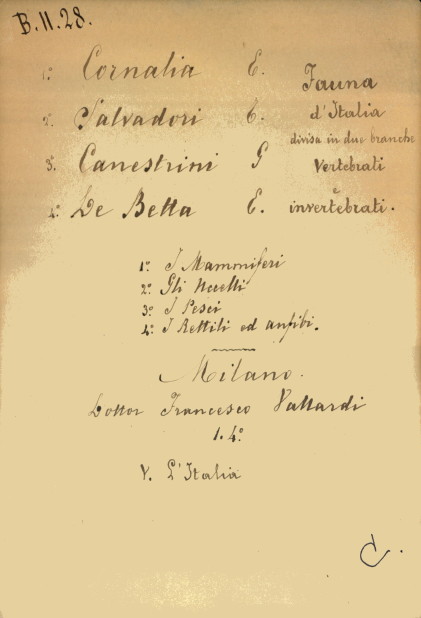 B. 11. 28.
1º. Cornalia E.
2º. Salvadori E.
3º. Canestrini G
4º. De Betta E.
Fauna
d'Italia
divisa in due branche
Vertebrati
e
invertebrati.
1º. I Mamoniferi
2º. Gli Uccelli
3º. I Pesci
4º. I Rettili ed anfibi.
Milano.
Dottor Francesco Vallardi
1. 4º
V. L'Italia
C.